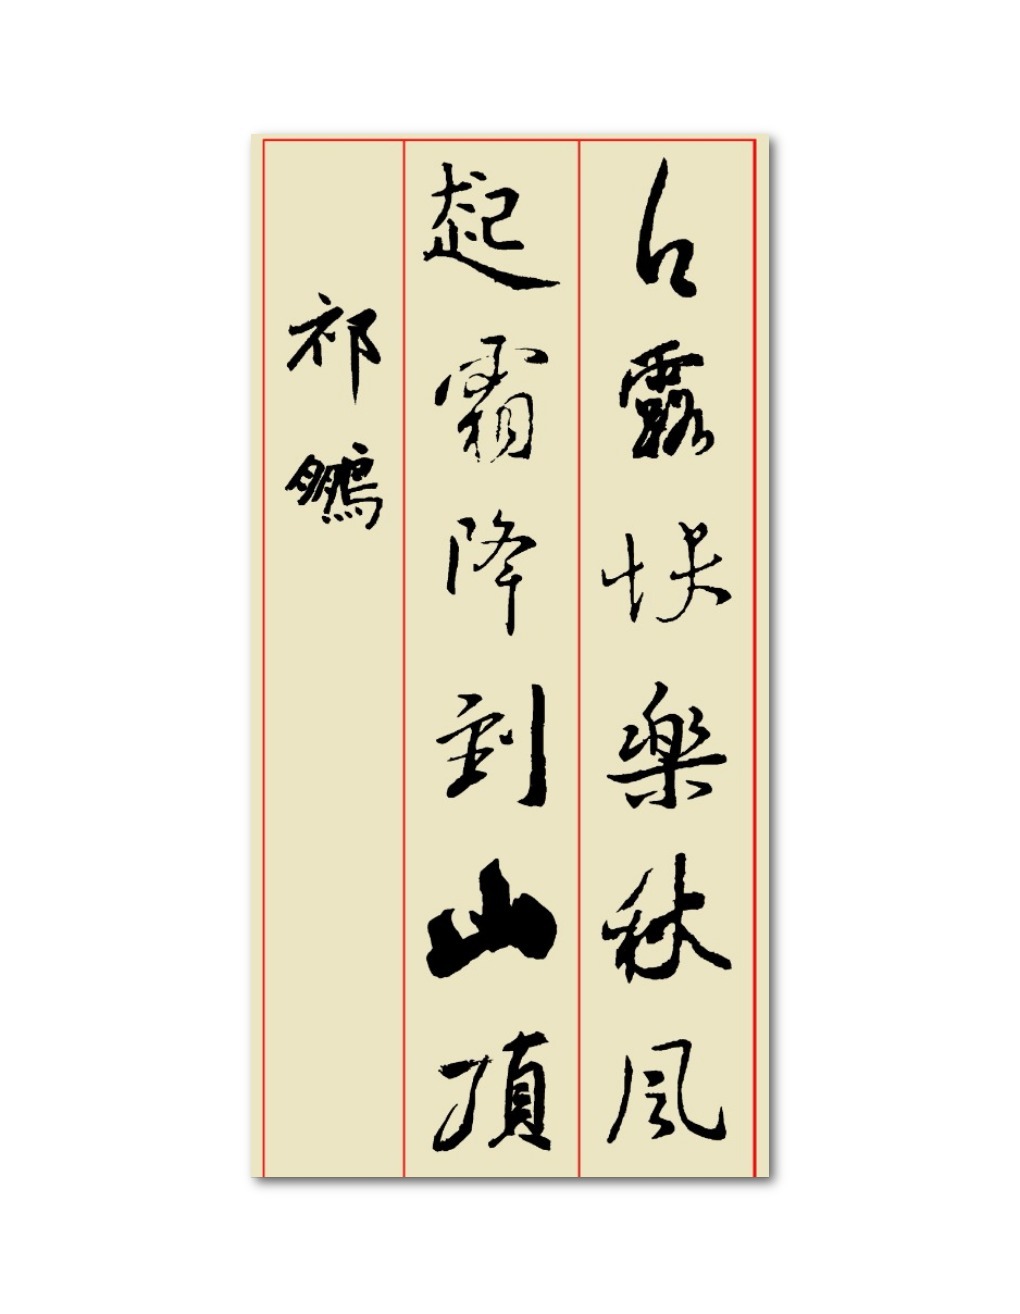 白露快樂秋風
起霜降到山頂
祁鵬